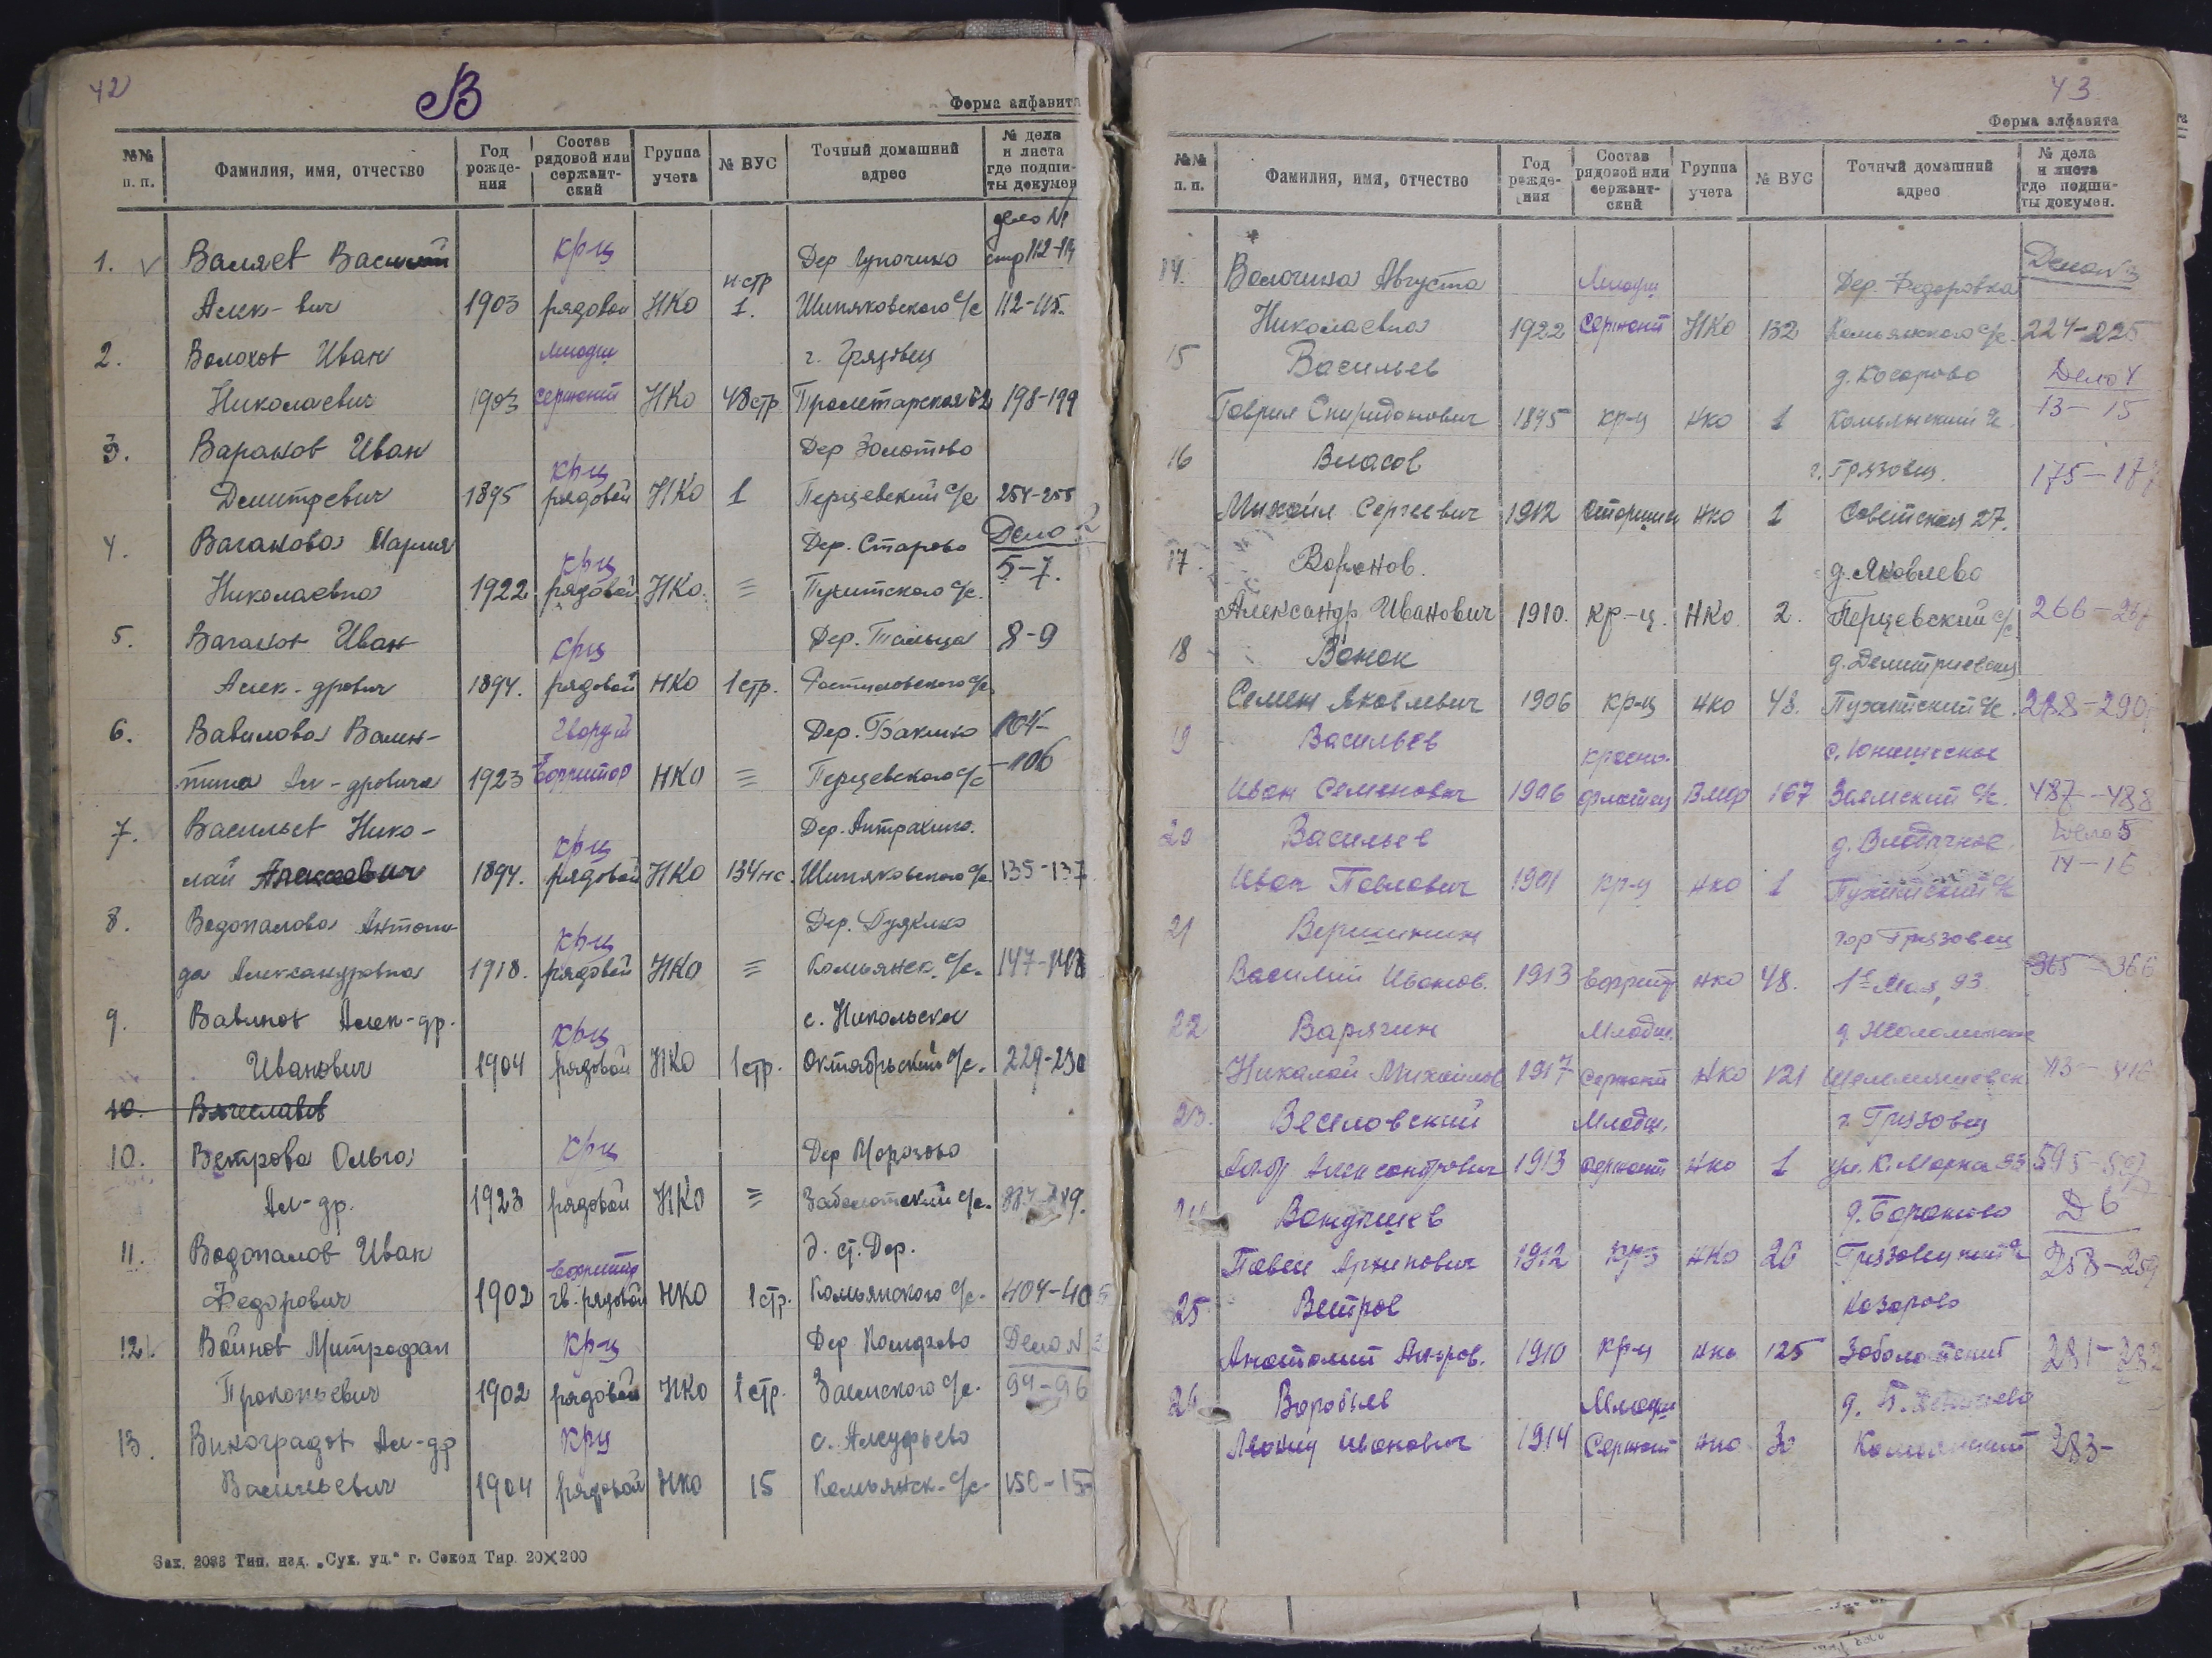 42
В
Форма алфавита
№№ п. п.
Фамилия, имя, отчество
Год рожде-ния
Состав рядовой или сержант-ский
Группа учета
№ ВУС
Точный домашний адрес
№ дела и листа где подши-ты докумен
дело №1
1. Валяев Василий крц Дер стр 112-114
Алек-вич 1903 рядовой НКО н-стр 1. Шиняковского с/с 112-115.
2. Волохов Иван младш г. Грязовец
Николаевич 1903 сержант НКО 48 стр Пролетарская 198-199
3. Вараков Иван крц Дер Золотово
Дмитревич 1895 рядовой НКО 1 Перцевский с/с 254-255
4. Ваганова Мария крц Дер. Старово Дело 2
Николаевна 1922 рядовой НКО. = Пухитского с/с. 5-7.
5. Ваганов Иван крц Дер. Тальца 8-9
Алек-дрович 1894. рядовой НКО 1 стр. Ростиловского с/с
6. Вавилова Вален- гвардии Дер. Баклино 104-
тина Ал-дровича 1923 Ефрейтор НКО = Перцевского с/с -106
7. Васильев Нико- крц Дер. Антрахино.
лай Алексеевич 1894. рядовой НКО 134 нс. Шиняковского с/с. 135-137
8. Водопалова Антони- крц Дер. Гудклио
да Александровна 1918. рядовой НКО = Комьянск. с/с. 147-148
9. Вавинов Алек-др. крц с. Никольское
Иванович 1904 рядовой НКО 1 стр. Октябрьский с/с. 229-230
10. Вячеславов
10. Ветрова Ольга крц Дер Морозово
Ал-др. 1923 рядовой НКО = Заболотский с/с.
11. Водопалов Иван Ефрейтор д. ст. Дер.
Федорович 1902 гв. рядовой НКО 1 стр. Комьянского с/с. 404-405
12. Войнов Митрофан крц Дер Дело N 3
Прокопьевич 1902 рядовой НКО 1 стр. Заемского с/с. 94-96
13. Виноградов Ал-др крц с. Алеуфьево
Васильевич 1904 рядовой НКО 15 Комьянск. с/с. 150-15
Зак. 2086 Тип. изд. „Сух. уд." г. Сокол Тир. 20×200
43
Форма алфавита
№№ п. п.
Фамилия, имя, отчество
Год рожде-ния
Состав рядовой или сержант-ский
Группа учета
№ ВУС
Точный домашний адрес
№ дела и листа где подши-ты докумен.
14. Волочина Августа Младш Дер. Федоровка Дело N 3
Николаевна 1922 Сержант НКО 132 Комьянского с/с. 224-225
15 Васильев д. Косарово Дело 4
Гаврил Спиридонович 1895 кр-ц НКО 1 Комьянский с/с. 13-15
16 Власов г. Грязовец. 175-177
Михаил Сергеевич 1912 Старшина НКО 1 Советская, 27.
17. Воронов. д. Яковлево
Александр Иванович 1910. кр-ц. НКО. 2. Перцевский с/с 266-267
18 Вонок д. Дмитриевская
Семен Яковлевич 1906 кр-ц НКО 48. Пухитский с/с. 288-290
19 Васильев красно- с. Юношеское
Иван Семенович 1906 флотец Вмф 167 Заемский с/с. 487-488
20 Васильев Дело 5
Иван Павлович 1901 кр-ц НКО 1 Пухитский с/с 14-16
21 Вершинин гор Грязовец
Василий Иванов. 1913 Ефрейт НКО 48. 1е Мая, 93 365-366
22 Варягин Младш.
Николай Михайлов 1917 Сержант НКО 121 413-416
23. Веселовский Младш. г. Грязовец
Александрович 1913 сержант НКО 1 ул. К. Маркса 93 595-597
24 Вандышев д. Бараново Д 6
Павел Архипович 1912 кр-ц НКО 20 Грязовецкий с/с 258-259
25 Ветров Косарово
Анатолий Ал-дров. 1910 кр-ц НКО 125 Заболотский 281-282
26 Воробьев Младш
Леонид Иванович 1914 Сержант НКО 30 Комьянский 283-